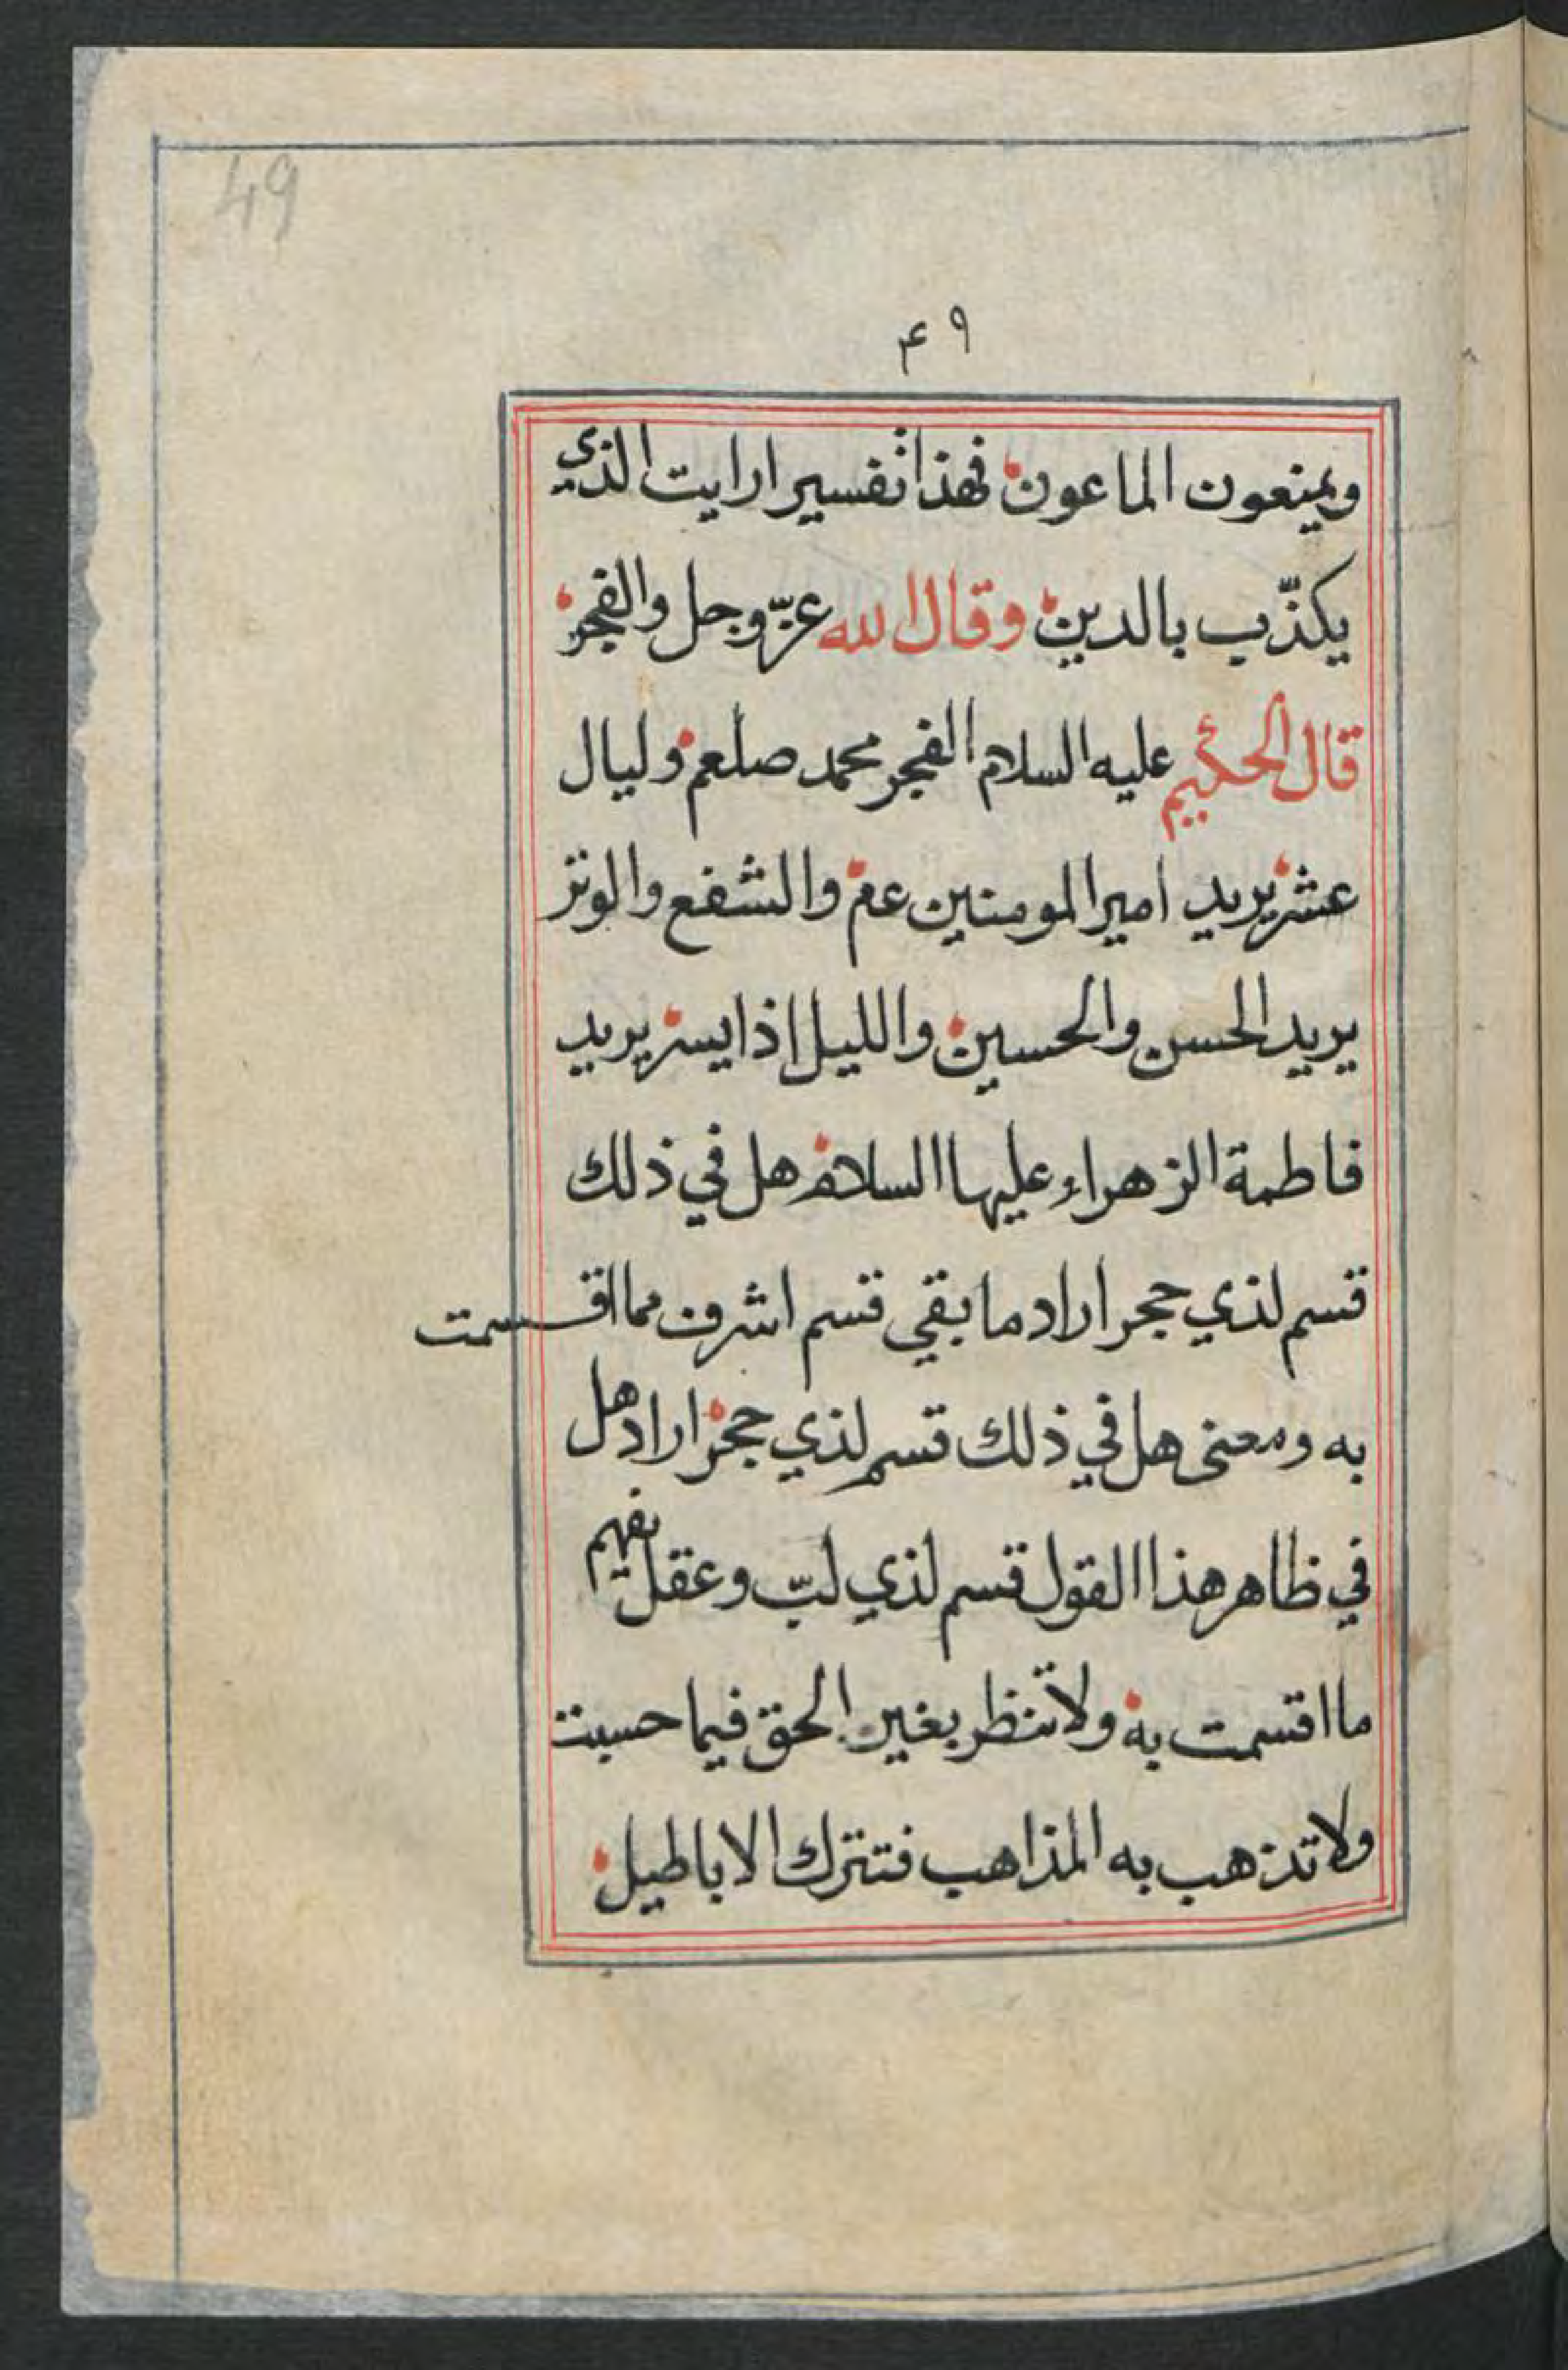 49
۴۹
ويمنعون الماعون فهذا تفسير ارايت الذي
يكذّب بالدين وقال الله عزّ وجل والفجر
قال الحكيم عليه السلام الفجر محمد صلعم وليال
عشر يريد امير المومنين عم والشفع والوتر
يريد الحسن والحسين والليل اذا يسر يريد
فاطمة الزهراء عليها السلام هل في ذلك
قسم لذي حجر اراد ما بقي قسم اشرف مما اقسمت
به ومعنى هل في ذلك قسم لذي حجر اراد هل
في ظاهر هذا القول قسم لذي لبّ وعقل يفهم
ما اقتسمت به ولا تنظر بغير الحق فيما حسبت
ولا تذهب به المذاهب فتترك الاباطيل